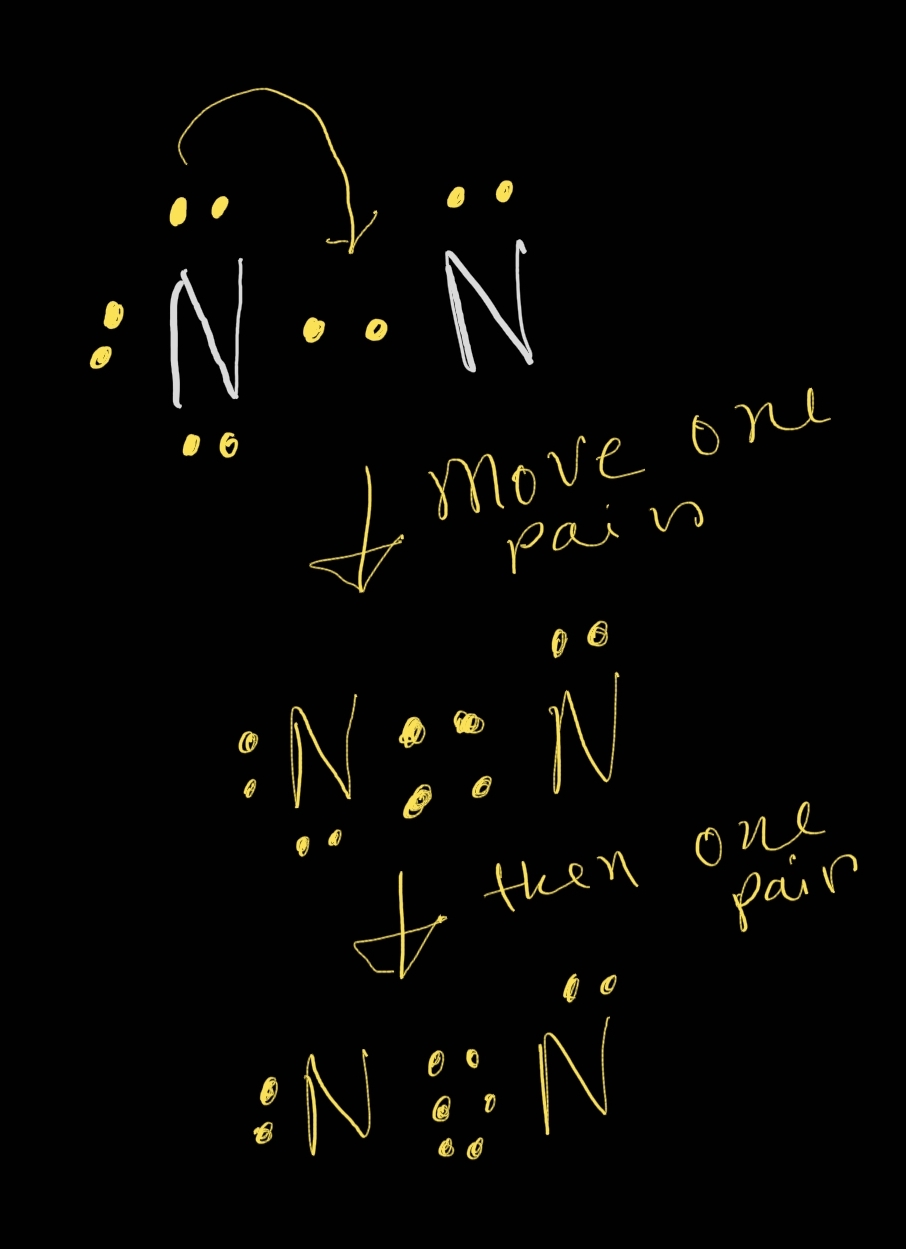 N N
Move one
pair
N N
then one
pair
N N